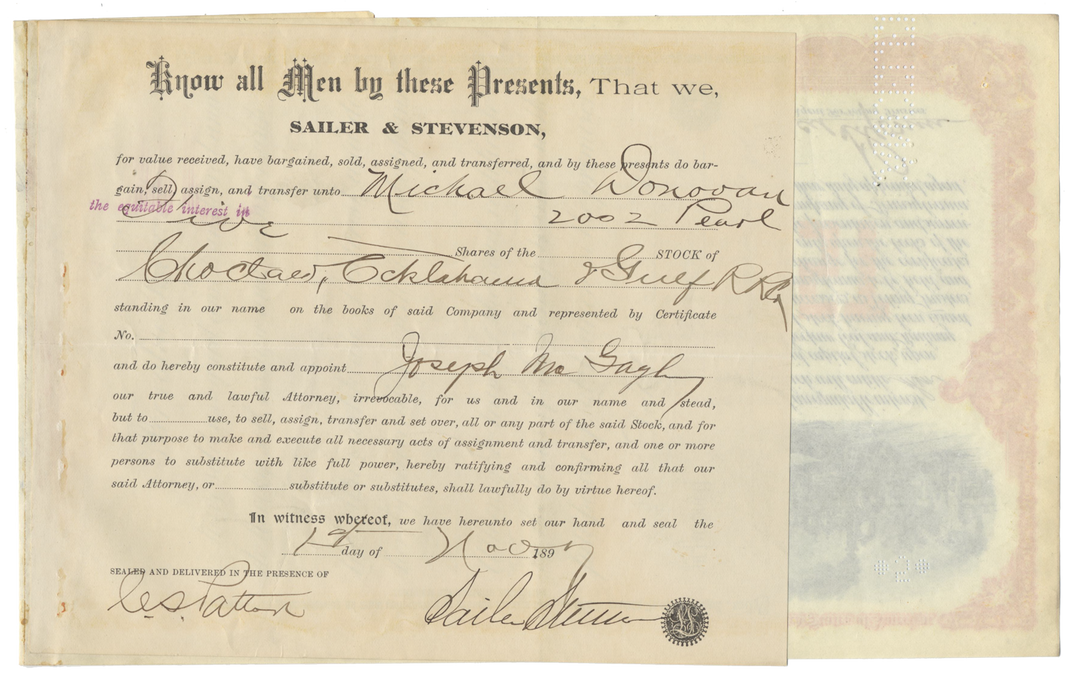 Know all Men by these Presents, That we,
SAILER & STEVENSON,
for value received, have bargained, sold, assigned, and transferred, and by these presents do bar-
gain, sell, assign, and transfer unto Michael Donovan
the equitable interest in
Five 2002 Pearl
Shares of the STOCK of
Choctaw, Ocklahama & Gulf R R Co
standing in our name on the books of said Company and represented by Certificate
No.
and do hereby constitute and appoint Joseph Mc
our true and lawful Attorney, irrevocable, for us and in our name and stead,
but to use, to sell, assign, transfer and set over, all or any part of the said Stock, and for
that purpose to make and execute all necessary acts of assignment and transfer, and one or more
persons to substitute with like full power, hereby ratifying and confirming all that our
said Attorney, or substitute or substitutes, shall lawfully do by virtue hereof.
In witness whereof, we have hereunto set our hand and seal the
1st day of Nov 189
SEALED AND DELIVERED IN THE PRESENCE OF
C.S. Patton Sailer Stevenson